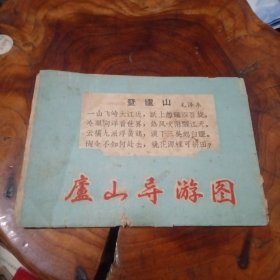 登廬山 毛泽东
一山飞峙大江边，跃上葱蘢四百旋。
冷眼向洋看世界，热风吹雨洒江天。
云横九派浮黄鹤，浪下三吴起白烟。
陶令不知何处去，桃花源里可耕田？
廬山导游图